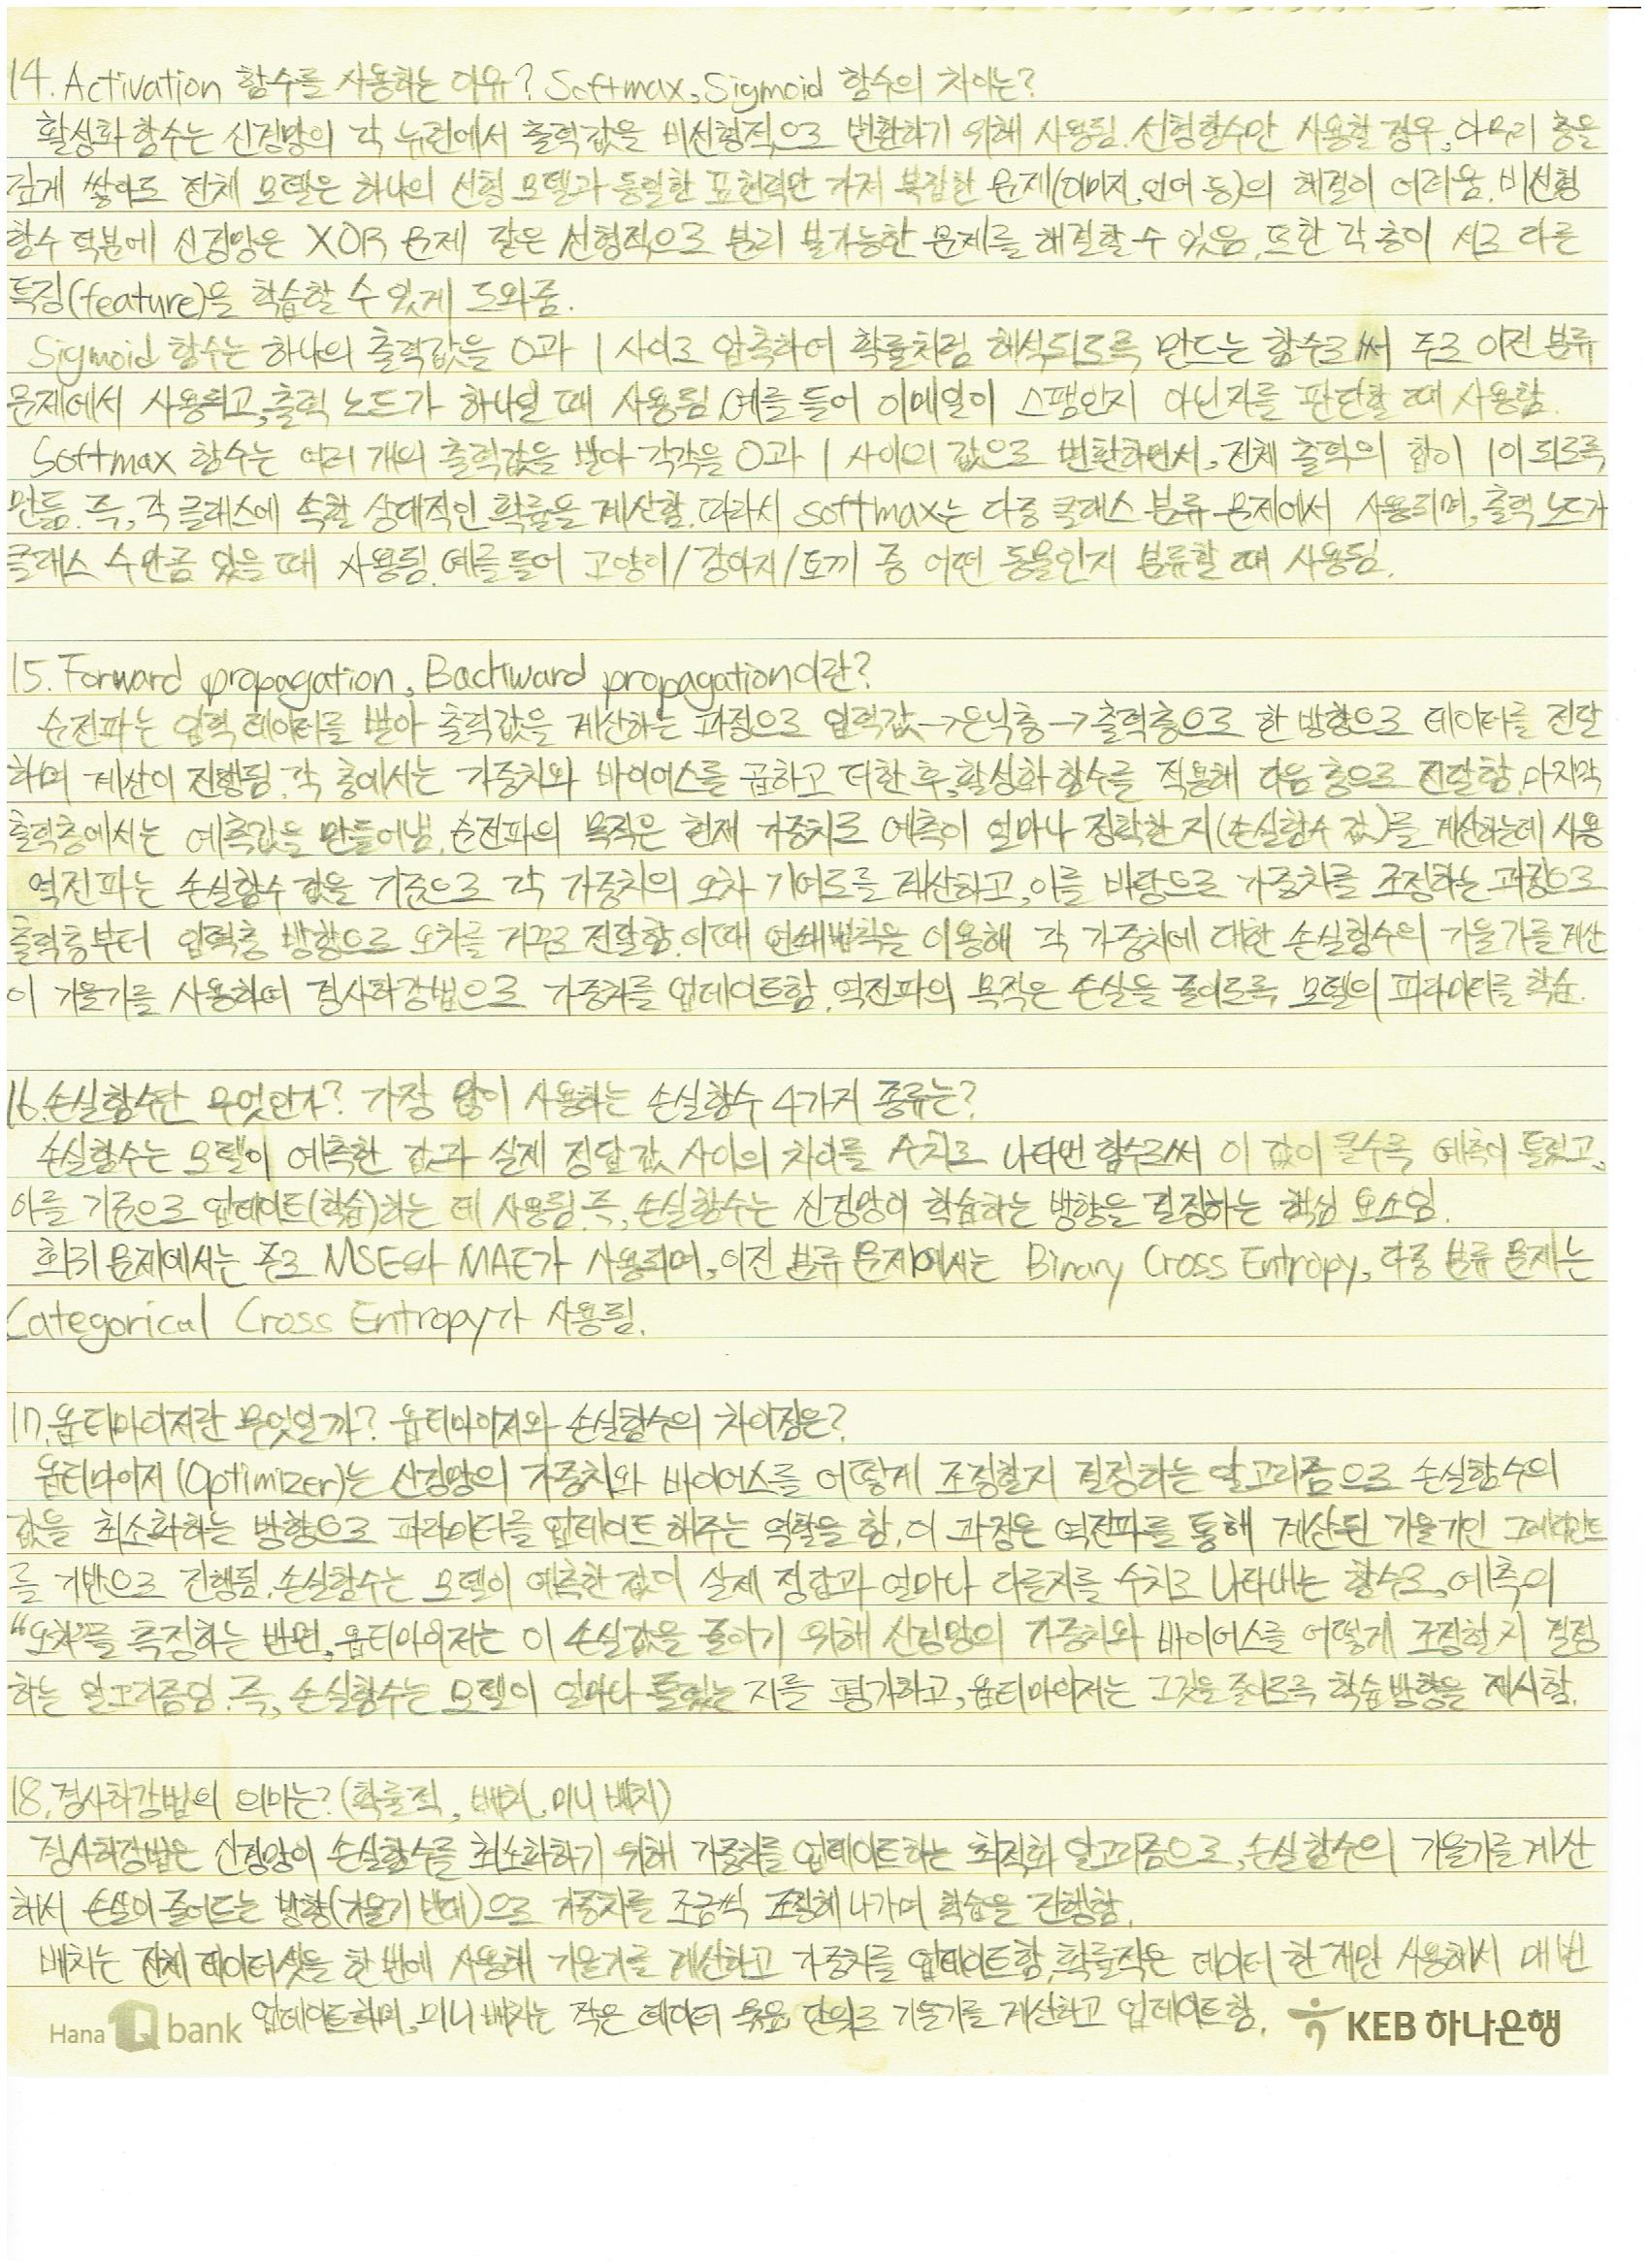 14. Activation 함수를 사용하는 이유? Softmax, Sigmoid 함수의 차이는?
활성화 함수는 신경망의 각 뉴런에서 출력값을 비선형적으로 변환하기 위해 사용됨. 선형함수만 사용할 경우, 아무리 층을
깊게 쌓아도 전체 모델은 하나의 선형 모델과 동일한 표현력만 가져 복잡한 문제(이미지, 언어 등)의 해결이 어려움. 비선형
함수 덕분에 신경망은 XOR 문제 같은 선형적으로 분리 불가능한 문제를 해결할 수 있음. 또한 각 층이 서로 다른
특징(feature)을 학습할 수 있게 도와줌.
Sigmoid 함수는 하나의 출력값을 0과 1 사이로 압축하여 확률처럼 해석되도록 만드는 함수로써 주로 이진 분류
문제에서 사용되고, 출력 노드가 하나일 때 사용됨. 예를 들어 이메일이 스팸인지 아닌지를 판단할 때 사용함.
Softmax 함수는 여러 개의 출력값을 받아 각각을 0과 1 사이의 값으로 변환하면서, 전체 출력의 합이 1이 되도록
만듦. 즉, 각 클래스에 속할 상대적인 확률을 계산함. 따라서 softmax는 다중 클래스 분류 문제에서 사용되며, 출력 노드가
클래스 수만큼 있을 때 사용됨. 예를 들어 고양이/강아지/토끼 중 어떤 동물인지 분류할 때 사용됨.
15. Forward propagation, Backward propagation이란?
순전파는 입력 데이터를 받아 출력값을 계산하는 과정으로 입력값→은닉층→출력층으로 한 방향으로 데이터를 전달
하며 계산이 진행됨. 각 층에서는 가중치와 바이어스를 곱하고 더한 후, 활성화 함수를 적용해 다음 층으로 전달함. 마지막
출력층에서는 예측값을 만들어냄. 순전파의 목적은 현재 가중치로 예측이 얼마나 정확한 지(손실함수 값)를 계산하는데 사용
역전파는 손실함수 값을 기준으로 각 가중치의 오차 기여도를 계산하고, 이를 바탕으로 가중치를 조정하는 과정으로
출력층부터 입력층 방향으로 오차를 거꾸로 전달함. 이때 연쇄법칙을 이용해 각 가중치에 대한 손실함수의 기울기를 계산
이 기울기를 사용하여 경사하강법으로 가중치를 업데이트함. 역전파의 목적은 손실을 줄이도록 모델의 파라미터를 학습.
16. 손실함수란 무엇인가? 가장 많이 사용하는 손실함수 4가지 종류는?
손실함수는 모델이 예측한 값과 실제 정답값 사이의 차이를 수치로 나타낸 함수로써 이 값이 클수록 예측이 틀렸고,
이를 기준으로 업데이트(학습)하는 데 사용됨. 즉, 손실함수는 신경망이 학습하는 방향을 결정하는 핵심 요소임.
회귀 문제에서는 주로 MSE와 MAE가 사용되며, 이진 분류 문제에서는 Binary Cross Entropy, 다중 분류 문제는
Categorical Cross Entropy가 사용됨.
17. 옵티마이저란 무엇일까? 옵티마이저와 손실함수의 차이점은?
옵티마이저(Optimizer)는 신경망의 가중치와 바이어스를 어떻게 조정할지 결정하는 알고리즘으로 손실함수의
값을 최소화하는 방향으로 파라미터를 업데이트 해주는 역할을 함. 이 과정은 역전파를 통해 계산된 기울기인 그래디언트
를 기반으로 진행됨. 손실함수는 모델이 예측한 값이 실제 정답과 얼마나 다른지를 수치로 나타내는 함수로, 예측의
"오차"를 측정하는 반면, 옵티마이저는 이 손실값을 줄이기 위해 신경망의 가중치와 바이어스를 어떻게 조정할 지 결정
하는 알고리즘임. 즉, 손실함수는 모델이 얼마나 틀렸는 지를 평가하고, 옵티마이저는 그것을 줄이도록 학습 방향을 제시함.
18. 경사하강법의 의미는? (확률적, 배치, 미니 배치)
경사하강법은 신경망이 손실함수를 최소화하기 위해 가중치를 업데이트하는 최적화 알고리즘으로, 손실함수의 기울기를 계산
해서 손실이 줄어드는 방향(기울기 반대)으로 가중치를 조금씩 조정해 나가며 학습을 진행함.
배치는 전체 데이터셋을 한 번에 사용해 기울기를 계산하고 가중치를 업데이트함. 확률적은 데이터 한 개만 사용해서 매번
업데이트하며, 미니 배치는 작은 데이터 묶음 단위로 기울기를 계산하고 업데이트함.
Hana 1Q bank KEB 하나은행